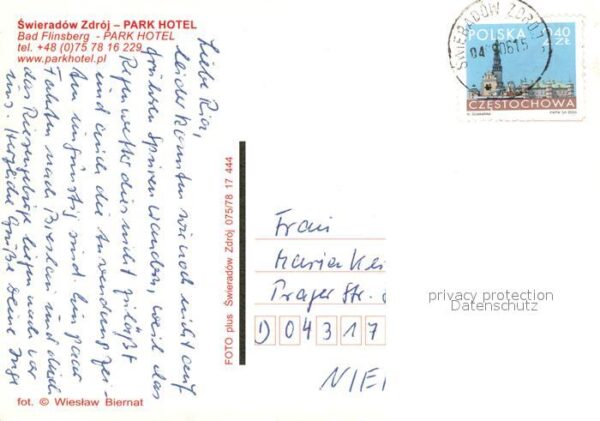 Świeradów Zdrój – PARK HOTEL
Bad Flinsberg - PARK HOTEL
tel. +48 (0)75 78 16 229
www.parkhotel.pl
Liebe Ria,
leider konnten wir noch nicht auf
großen Spuren wandern, weil das
Regenwetter dies nicht zuläßt
und auch die Anwendungszei-
ten ungünstig sind. Ein paar
Fahrten nach Breslau und durch
das Riesengebirge liegen noch vor
uns. Herzliche Grüße Deine Inge
fot. © Wiesław Biernat
FOTO plus Świeradów Zdrój 075/78 17 444
ŚWIERADÓW ZDRÓJ
POLSKA
2,40
ZŁ
CZĘSTOCHOWA
Frau
Maria
Prager Str.
D 04317
privacy protection
Datenschutz